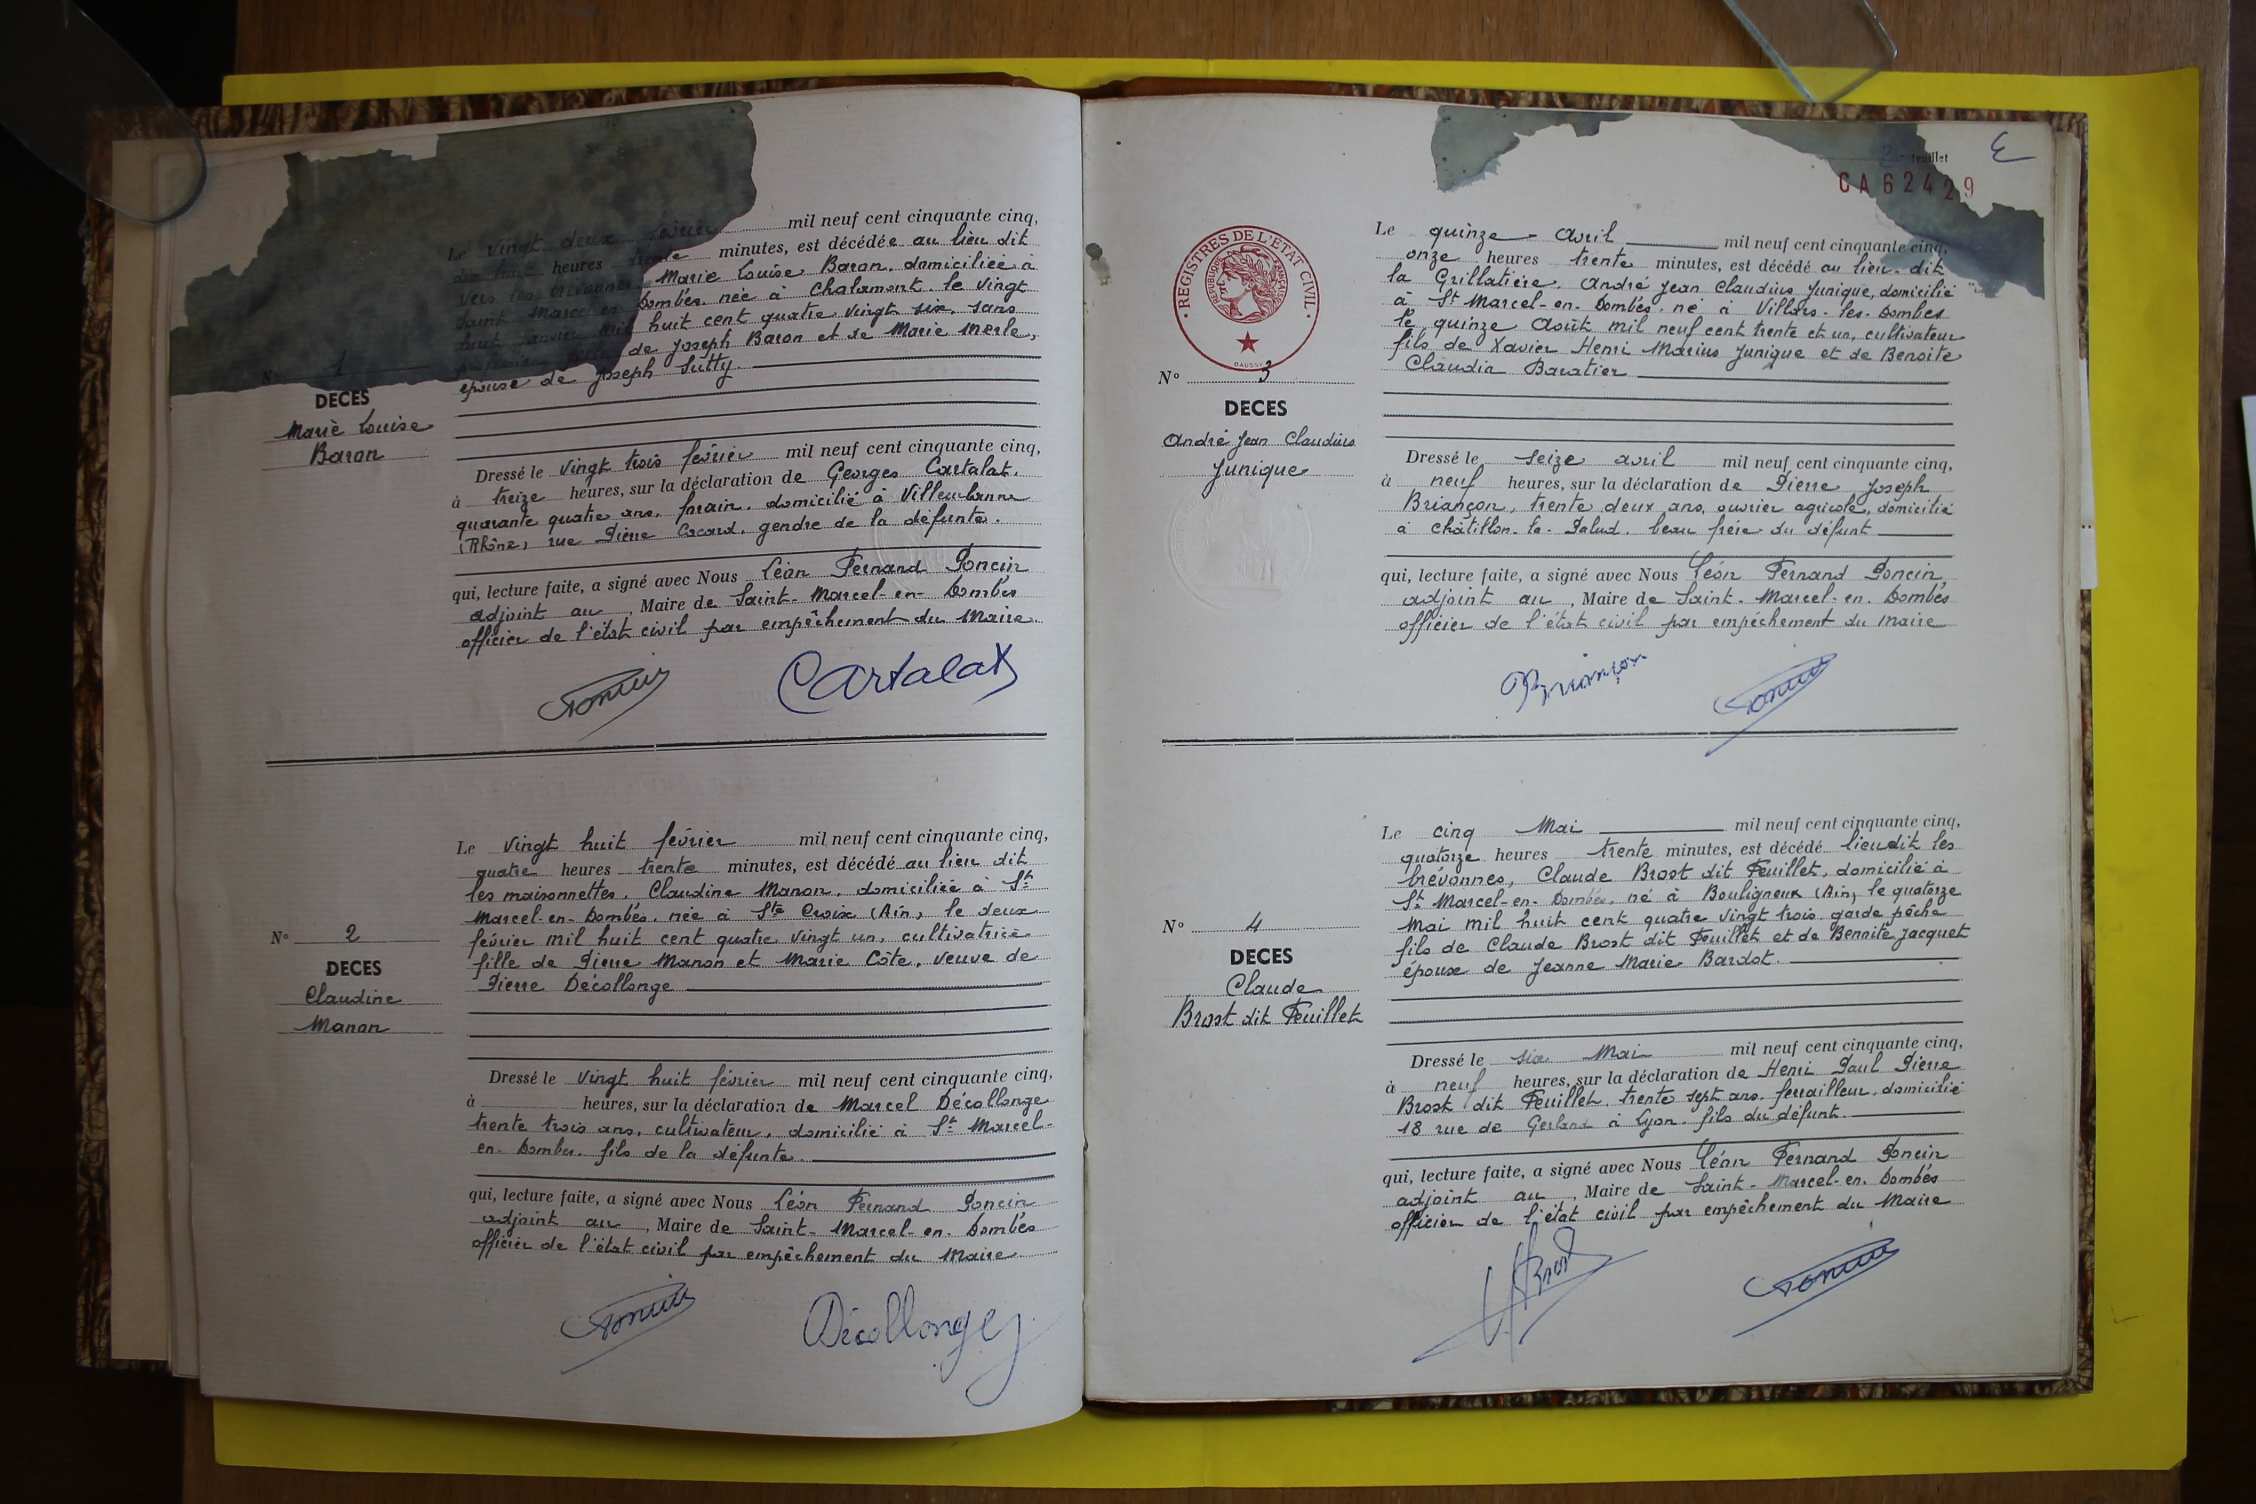 Le vingt deux février mil neuf cent cinquante cinq,
heures trente minutes, est décédée au lieu dit
Marie Louise Baron, domiciliée à
Saint Marcel en Dombés, née à Chalamont, le vingt
huit janvier mil huit cent quatre vingt six, sans
de Joseph Baron et de Marie Merle,
épouse de Joseph Sutty.
N° 1
DECES
Marie Louise
Baron
Dressé le vingt trois février mil neuf cent cinquante cinq,
à treize heures, sur la déclaration de Georges Cartalat,
quarante quatre ans, forain, domicilié à Villeurbanne
(Rhône) rue Pierre Cacard, gendre de la défunte.
qui, lecture faite, a signé avec Nous Léon Fernand Poncin
adjoint au, Maire de Saint-Marcel-en-Dombés
officier de l'état civil par empêchement du Maire.
Poncin
Cartalat
Le vingt huit février mil neuf cent cinquante cinq,
quatre heures trente minutes, est décédé au lieu dit
les maisonnettes, Claudine Manon, domiciliée à St
Marcel-en-Dombés, née à Ste Croix (Ain) le deux
février mil huit cent quatre vingt un, cultivatrice
fille de Pierre Manon et Marie Côte, veuve de
Pierre Décollonge
N° 2
DECES
Claudine
Manon
Dressé le vingt huit février mil neuf cent cinquante cinq,
à heures, sur la déclaration de Marcel Décollonge
trente trois ans, cultivateur, domicilié à St Marcel-
en-Dombes, fils de la défunte.
qui, lecture faite, a signé avec Nous Léon Fernand Poncin
adjoint au, Maire de Saint-Marcel-en-Dombés
officier de l'état civil par empêchement du Maire
Poncin
Décollonge
feuillet
CA62429
REGISTRES DE L'ETAT CIVIL
REPUBLIQUE FRANÇAISE
DAUSSY
Le quinze avril mil neuf cent cinquante cinq,
onze heures trente minutes, est décédé au lieu-dit
la Grillatière, André Jean Claudius Junique, domicilié
à St Marcel-en-Dombés, né à Villars-les-Dombes
le quinze Août mil neuf cent trente et un, cultivateur
fils de Xavier Henri Marius Junique et de Benoite
Claudia Baratier
N° 3
DECES
André Jean Claudius
Junique
Dressé le seize avril mil neuf cent cinquante cinq,
à neuf heures, sur la déclaration de Pierre Joseph
Briançon, trente deux ans, ouvrier agricole, domicilié
à Châtillon-la-Palud, beau frère du défunt
qui, lecture faite, a signé avec Nous Léon Fernand Poncin,
adjoint au, Maire de Saint-Marcel-en-Dombés
officier de l'état civil par empêchement du Maire
Briançon
Poncin
Le cinq Mai mil neuf cent cinquante cinq,
quatorze heures trente minutes, est décédé lieudit les
brévonnes, Claude Brost dit Feuillet, domicilié à
St Marcel-en-Dombés, né à Bouligneux (Ain) le quatorze
Mai mil huit cent quatre vingt trois, garde pêche
fils de Claude Brost dit Feuillet et de Bennoite Jacquet
épouse de Jeanne Marie Bardot.
N° 4
DECES
Claude
Brost dit Feuillet
Dressé le six Mai mil neuf cent cinquante cinq,
à neuf heures, sur la déclaration de Henri Paul Pierre
Brost dit Feuillet, trente sept ans, ferrailleur, domicilié
18 rue de Gerland à Lyon, fils du défunt.
qui, lecture faite, a signé avec Nous Léon Fernand Poncin
adjoint au, Maire de Saint-Marcel-en-Dombés
officier de l'état civil par empêchement du Maire
HBrost
Poncin